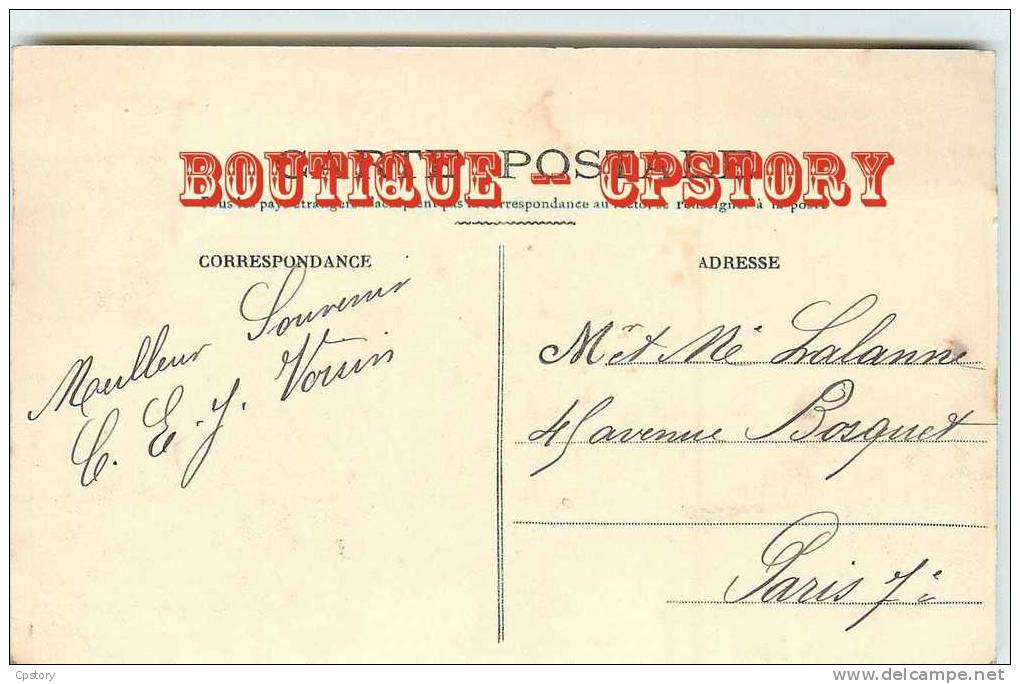 CARTE POSTALE
BOUTIQUE - CPSTORY
Tous les pays étrangers n'acceptent pas la correspondance au recto, se renseigner à la poste
CORRESPONDANCE
Meilleur Souvenir
C. E. J. Vouin
ADRESSE
Mr et Me Lalanne
45 avenue Bosquet
Paris 7e
Cpstory
delcampe.net